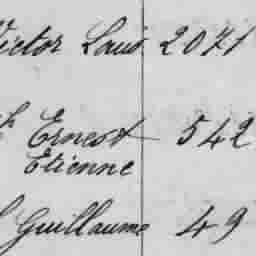 Victor Louis 2071
Ernest 542
Etienne
Guillaume 49